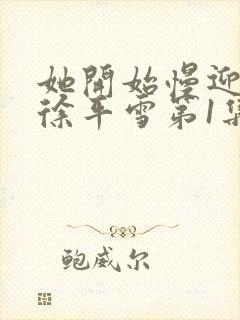 她開始慢迎
徐平雪第1集
鲍威尔